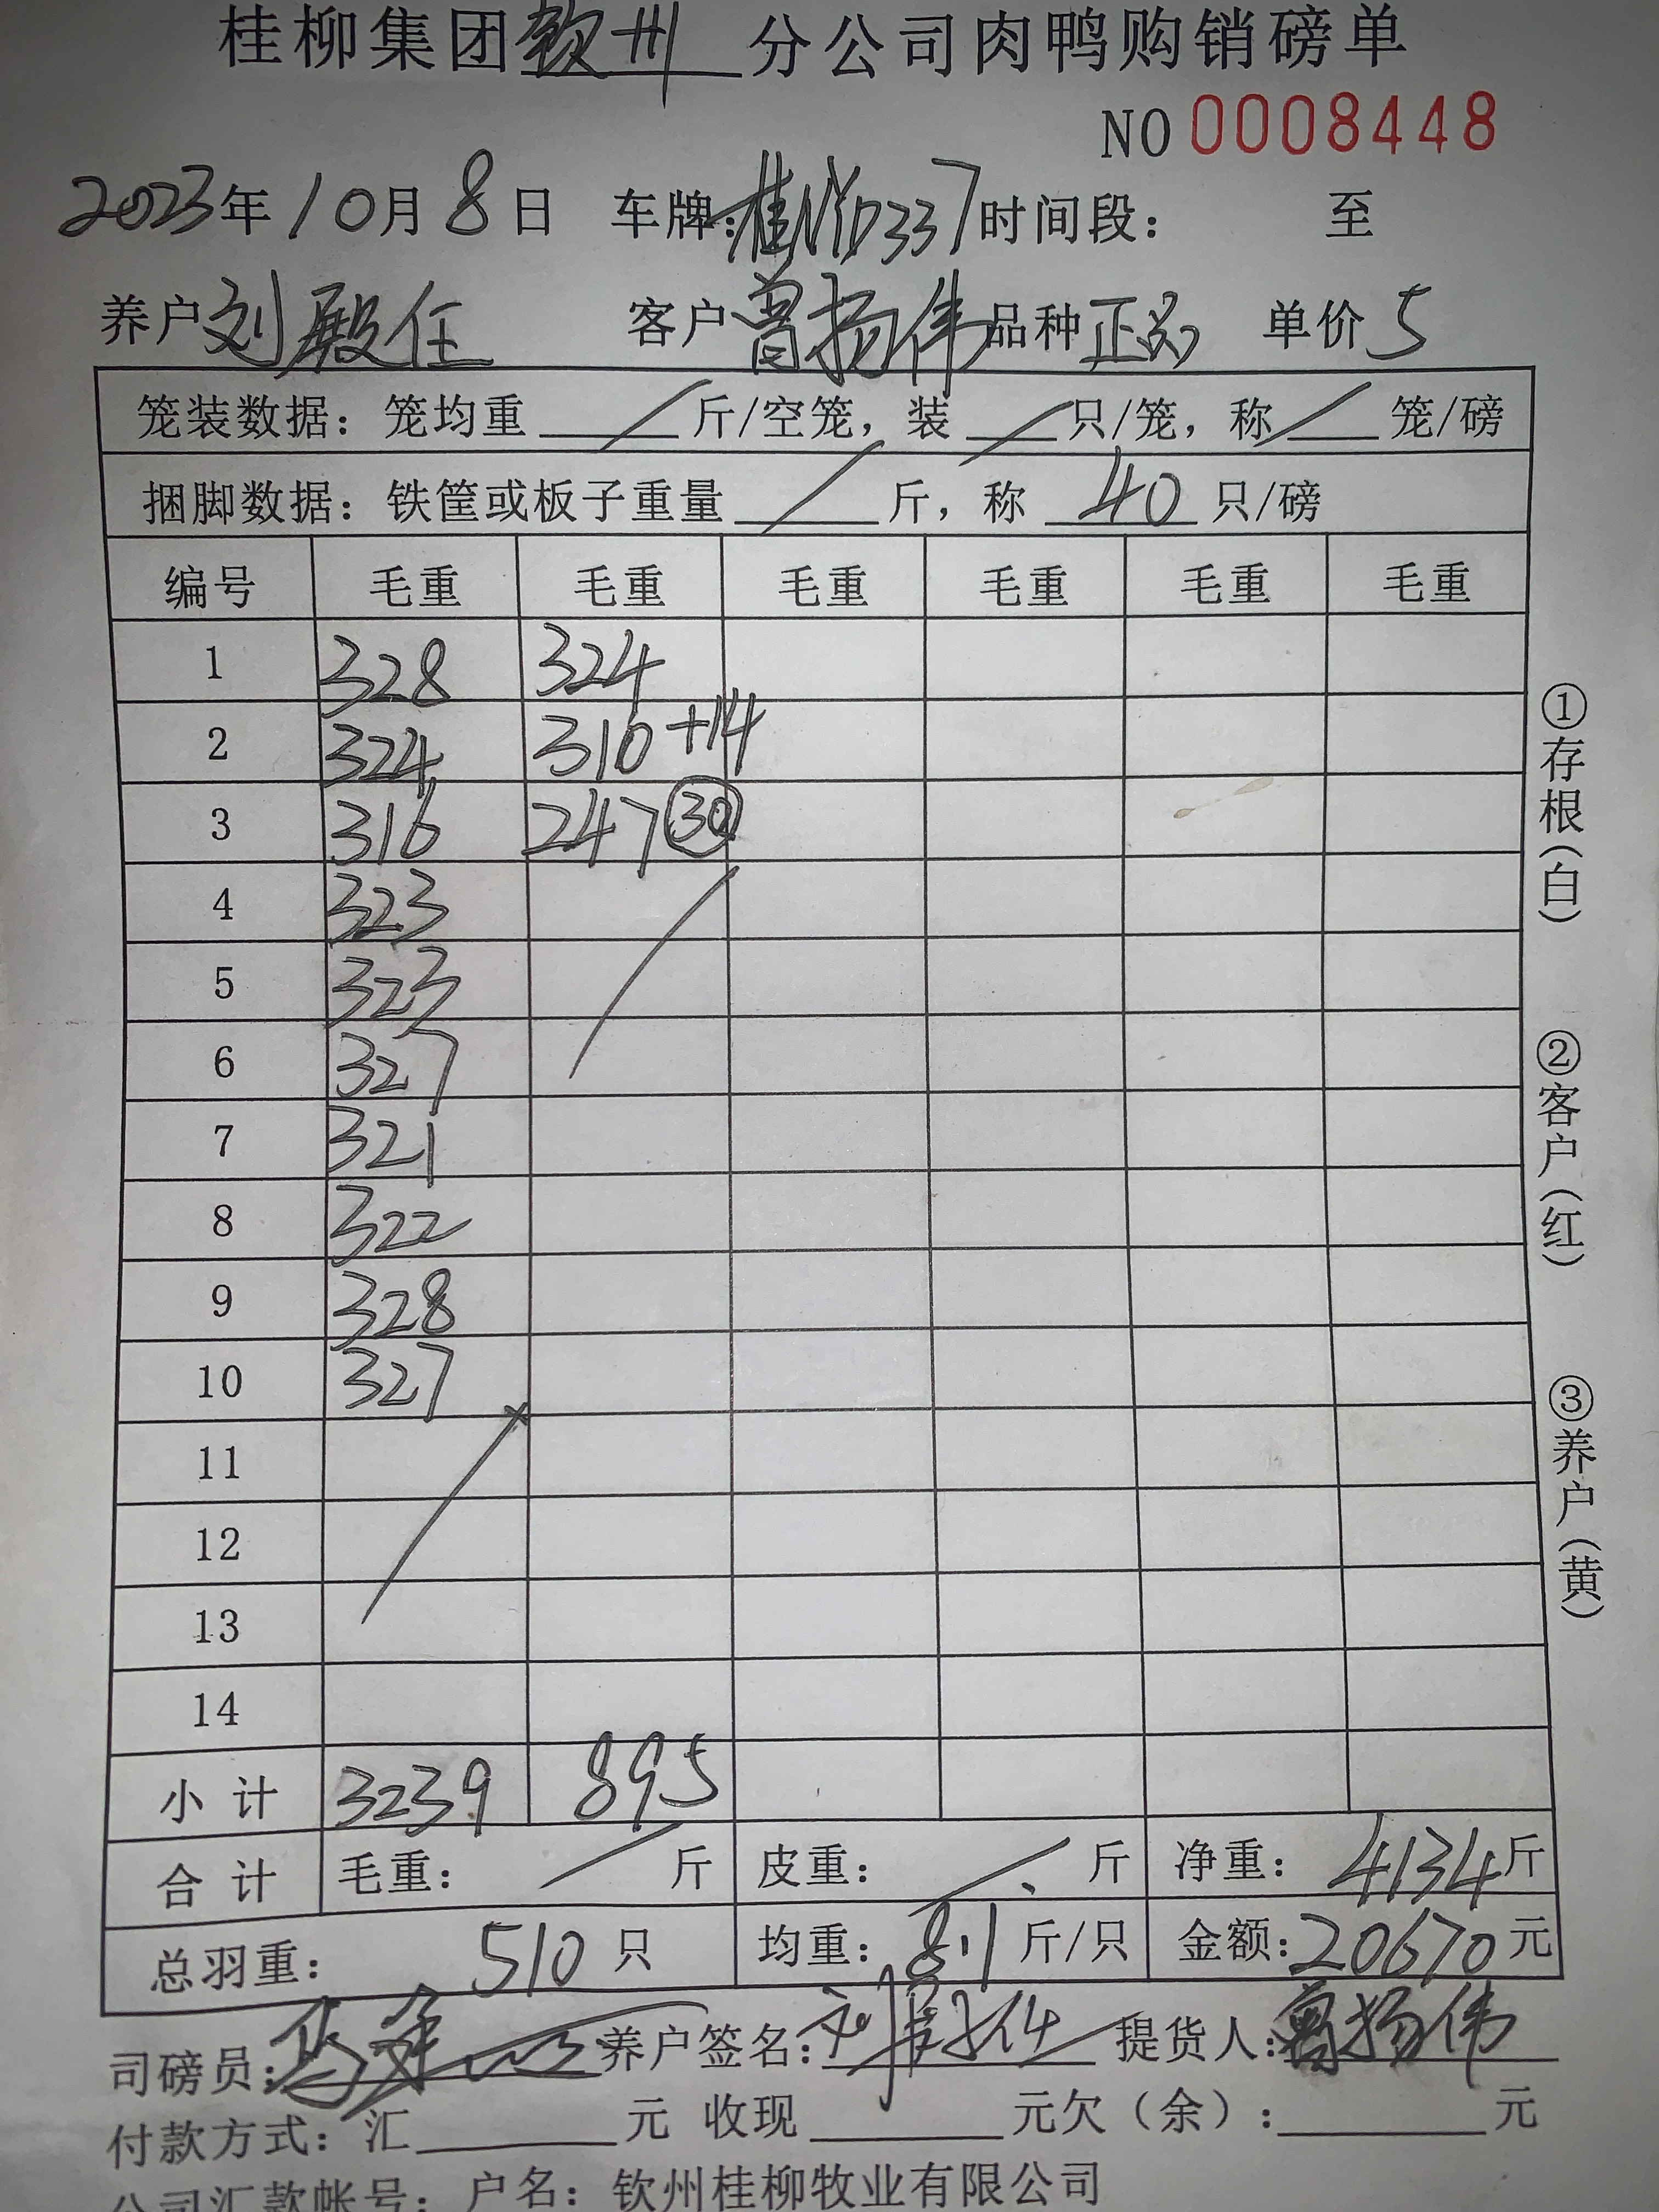 桂柳集团钦州分公司肉鸭购销磅单
NO 0008448
2023年10月8日 车牌:桂 D337 时间段: 至
养户 刘殿任 客户 曾扬伟 品种 正品 单价 5
笼装数据: 笼均重 / 斤/空笼, 装 / 只/笼, 称 / 笼/磅
捆脚数据: 铁筐或板子重量 / 斤, 称 40 只/磅
编号 毛重 毛重 毛重 毛重 毛重 毛重
1 328 324
2 324 310+14
3 316 247 30
4 323
5 323
6 327
7 321
8 322
9 328
10 327
11
12
13
14
小计 3239 895
合计 毛重: / 斤 皮重: / 斤 净重: 4134斤
总羽重: 510只 均重: 8.1斤/只 金额:20670元
司磅员: 养户签名: 刘殿任 提货人:曾扬伟
付款方式: 汇 元 收现 元欠(余): 元
公司汇款帐号: 户名: 钦州桂柳牧业有限公司
①存根(白)
②客户(红)
③养户(黄)